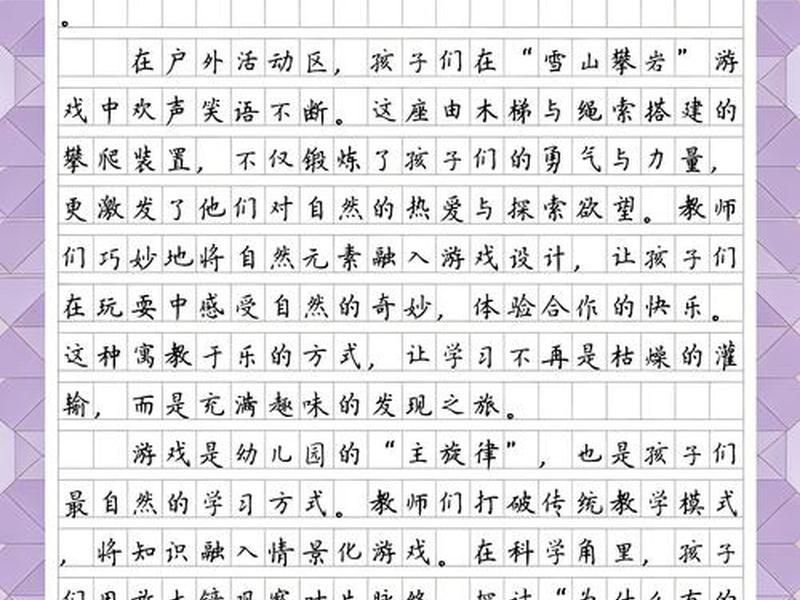 。
在户外活动区，孩子们在“雪山攀岩”游
戏中欢声笑语不断。这座由木梯与绳索搭建的
攀爬装置，不仅锻炼了孩子们的勇气与力量，
更激发了他们对自然的热爱与探索欲望。教师
们巧妙地将自然元素融入游戏设计，让孩子们
在玩耍中感受自然的奇妙，体验合作的快乐。
这种寓教于乐的方式，让学习不再是枯燥的灌
输，而是充满趣味的发现之旅。
游戏是幼儿园的“主旋律”，也是孩子们
最自然的学习方式。教师们打破传统教学模式
，将知识融入情景化游戏。在科学角里，孩子